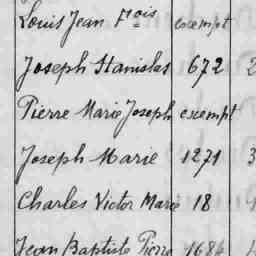 Louis Jean Fçois exempt
Joseph Stanislas 672 2
Pierre Marie Joseph exempt
Joseph Marie 1271 3
Charles Victor Marie 18
Jean Baptiste Pierre 1684